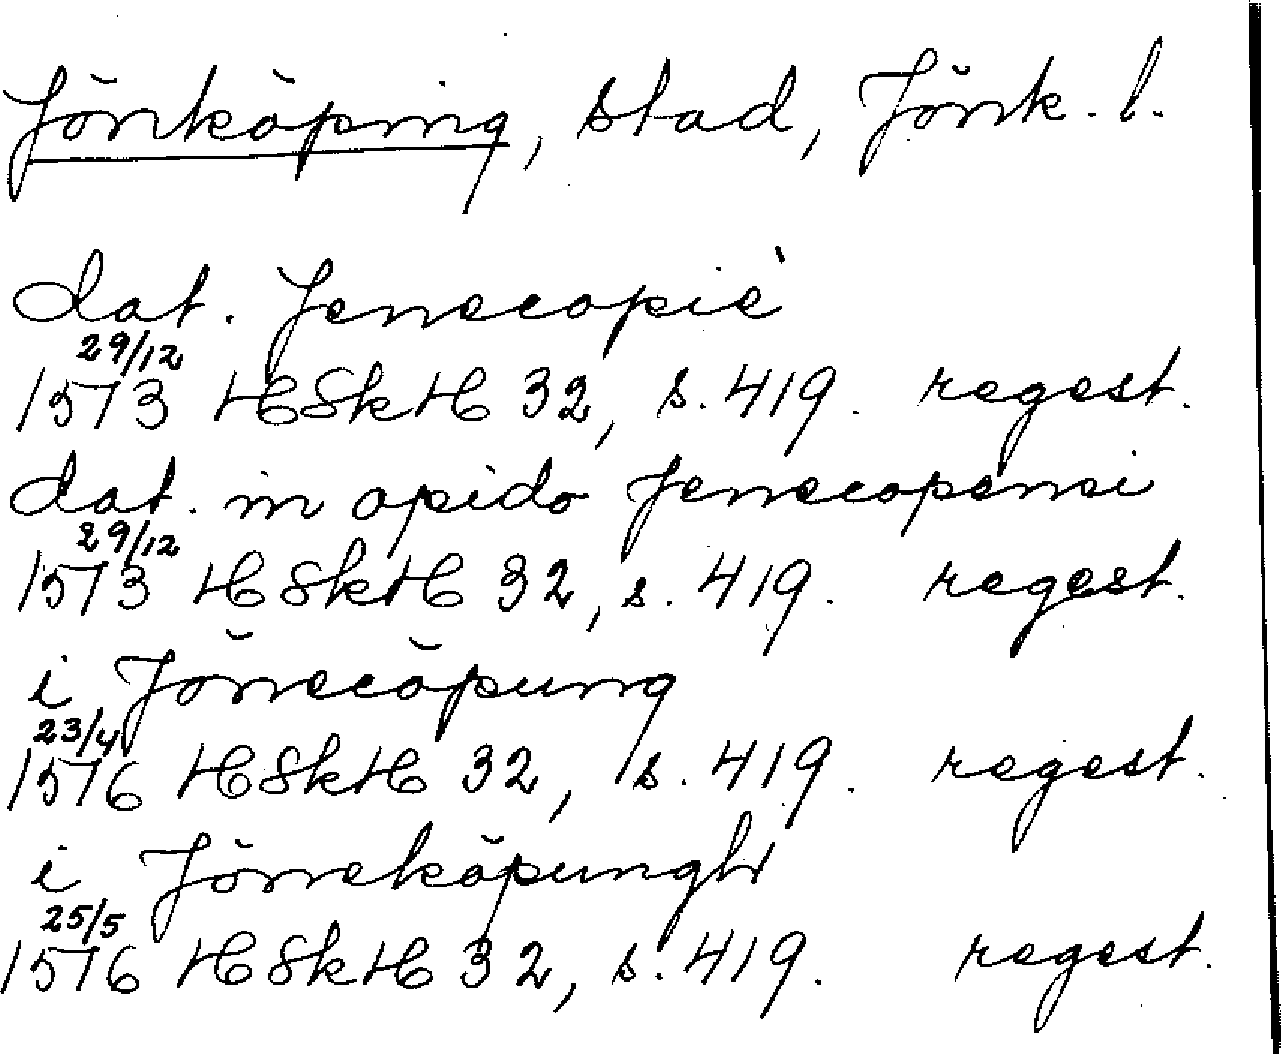 Jönköping, stad, Jönk. l.
dat. Jenecopiè
29/12
1573 HSkH 32, s. 419. regest.
dat. in opido Jenecopensi
29/12
1573 HSkH 32, s. 419. regest.
i Jönecöpung
23/4
1576 HSkH 32, s. 419. regest.
i Jöneköpungh
25/5
1576 HSkH 32, s. 419. regest.